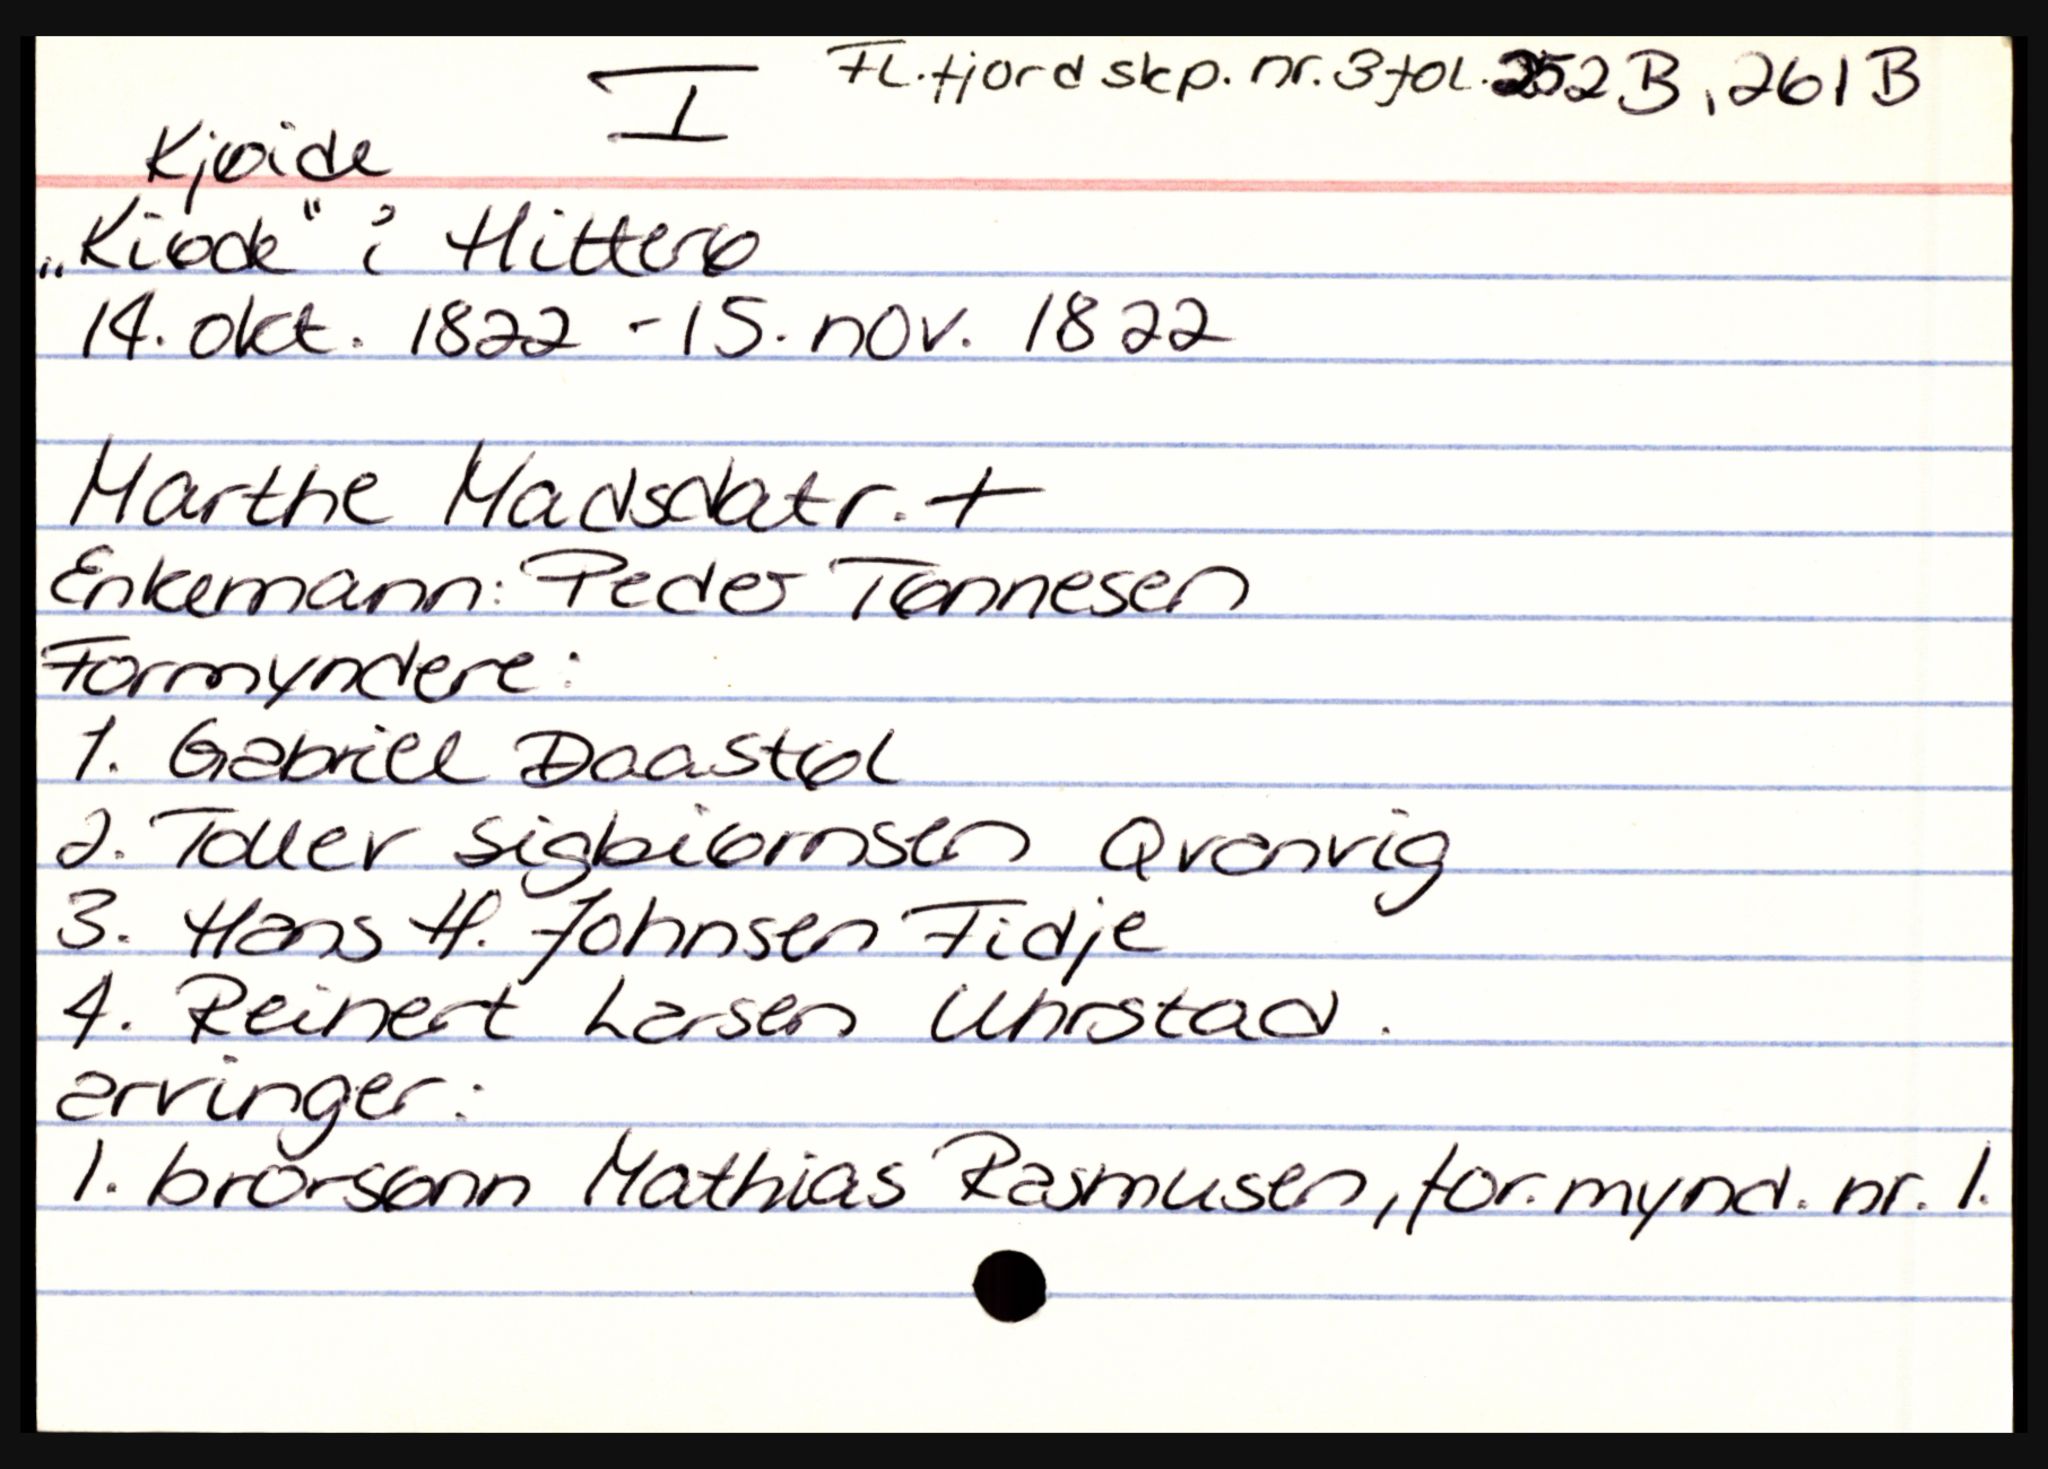 I Fl.fjord skp. nr. 3 fol. 252 B, 261 B
Kjøide
„Kiøde" i Hitterø
14. okt. 1822 - 15. nov. 1822
Marthe Madsdatr. +
Enkemann: Peder Tønnesen
Formyndere:
1. Gabriel Daastøl
2. Toller Sigbiørnsen Qvanvig
3. Hans H. Johnsen Fidje
4. Reinert Larsen Uhrstad.
arvinger:
1. brorsønn Mathias Rasmusen, for.mynd. nr. 1.